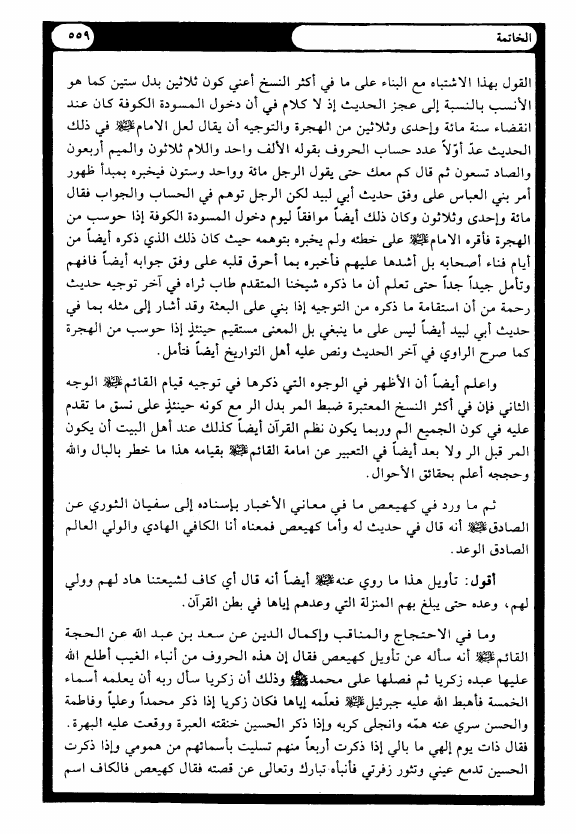 الخاتمة
٥٥٩
القول بهذا الاشتباه مع البناء على ما في أكثر النسخ أعني كون ثلاثين بدل ستين كما هو
الأنسب بالنسبة إلى عجز الحديث إذ لا كلام في أن دخول المسودة الكوفة كان عند
انقضاء سنة مائة وإحدى وثلاثين من الهجرة والتوجيه أن يقال لعل الامام في ذلك
الحديث عدّ أوّلاً عدد حساب الحروف بقوله الألف واحد واللام ثلاثون والميم أربعون
والصاد تسعون ثم قال كم معك حتى يقول الرجل مائة وواحد وستون فيخبره بمبدأ ظهور
أمر بني العباس على وفق حديث أبي لبيد لكن الرجل توهم في الحساب والجواب فقال
مائة وإحدى وثلاثون وكان ذلك أيضاً موافقاً ليوم دخول المسودة الكوفة إذا حوسب من
الهجرة فأقره الامام على خطئه ولم يخبره بتوهمه حيث كان ذلك الذي ذكره أيضاً من
أيام فناء أصحابه بل أشدها عليهم فأخبره بما أحرق قلبه على وفق جوابه أيضاً فافهم
وتأمل جيداً جداً حتى تعلم أن ما ذكره شيخنا المتقدم طاب ثراه في آخر توجيه حديث
رحمة من أن استقامة ما ذكره من التوجيه إذا بني على البعثة وقد أشار إلى مثله بما في
حديث أبي لبيد أيضاً ليس على ما ينبغي بل المعنى مستقيم حينئذٍ إذا حوسب من الهجرة
كما صرح الراوي في آخر الحديث ونص عليه أهل التواريخ أيضاً فتأمل.
واعلم أيضاً أن الأظهر في الوجوه التي ذكرها في توجيه قيام القائم الوجه
الثاني فإن في أكثر النسخ المعتبرة ضبط المر بدل الر مع كونه حينئذٍ على نسق ما تقدم
عليه في كون الجميع الم وربما يكون نظم القرآن أيضاً كذلك عند أهل البيت أن يكون
المر قبل الر ولا بعد أيضاً في التعبير عن امامة القائم بقيامه هذا ما خطر بالبال والله
وحججه أعلم بحقائق الأحوال.
ثم ما ورد في كهيعص ما في معاني الأخبار بإسناده إلى سفيان الثوري عن
الصادق أنه قال في حديث له وأما كهيعص فمعناه أنا الكافي الهادي والولي العالم
الصادق الوعد.
أقول: تأويل هذا ما روي عنه أيضاً أنه قال أي كاف لشيعتنا هاد لهم وولي
لهم، وعده حتى يبلغ بهم المنزلة التي وعدهم إياها في بطن القرآن.
وما في الاحتجاج والمناقب وإكمال الدين عن سعد بن عبد الله عن الحجة
القائم أنه سأله عن تأويل كهيعص فقال إن هذه الحروف من أنباء الغيب أطلع الله
عليها عبده زكريا ثم فصلها على محمد وذلك أن زكريا سأل ربه أن يعلمه أسماء
الخمسة فأهبط الله عليه جبرئيل فعلّمه إياها فكان زكريا إذا ذكر محمداً وعلياً وفاطمة
والحسن سري عنه همّه وانجلى كربه وإذا ذكر الحسين خنقته العبرة ووقعت عليه البهرة.
فقال ذات يوم إلهي ما بالي إذا ذكرت أربعاً منهم تسليت بأسمائهم من همومي وإذا ذكرت
الحسين تدمع عيني وتثور زفرتي فأنبأه تبارك وتعالى عن قصته فقال كهيعص فالكاف اسم